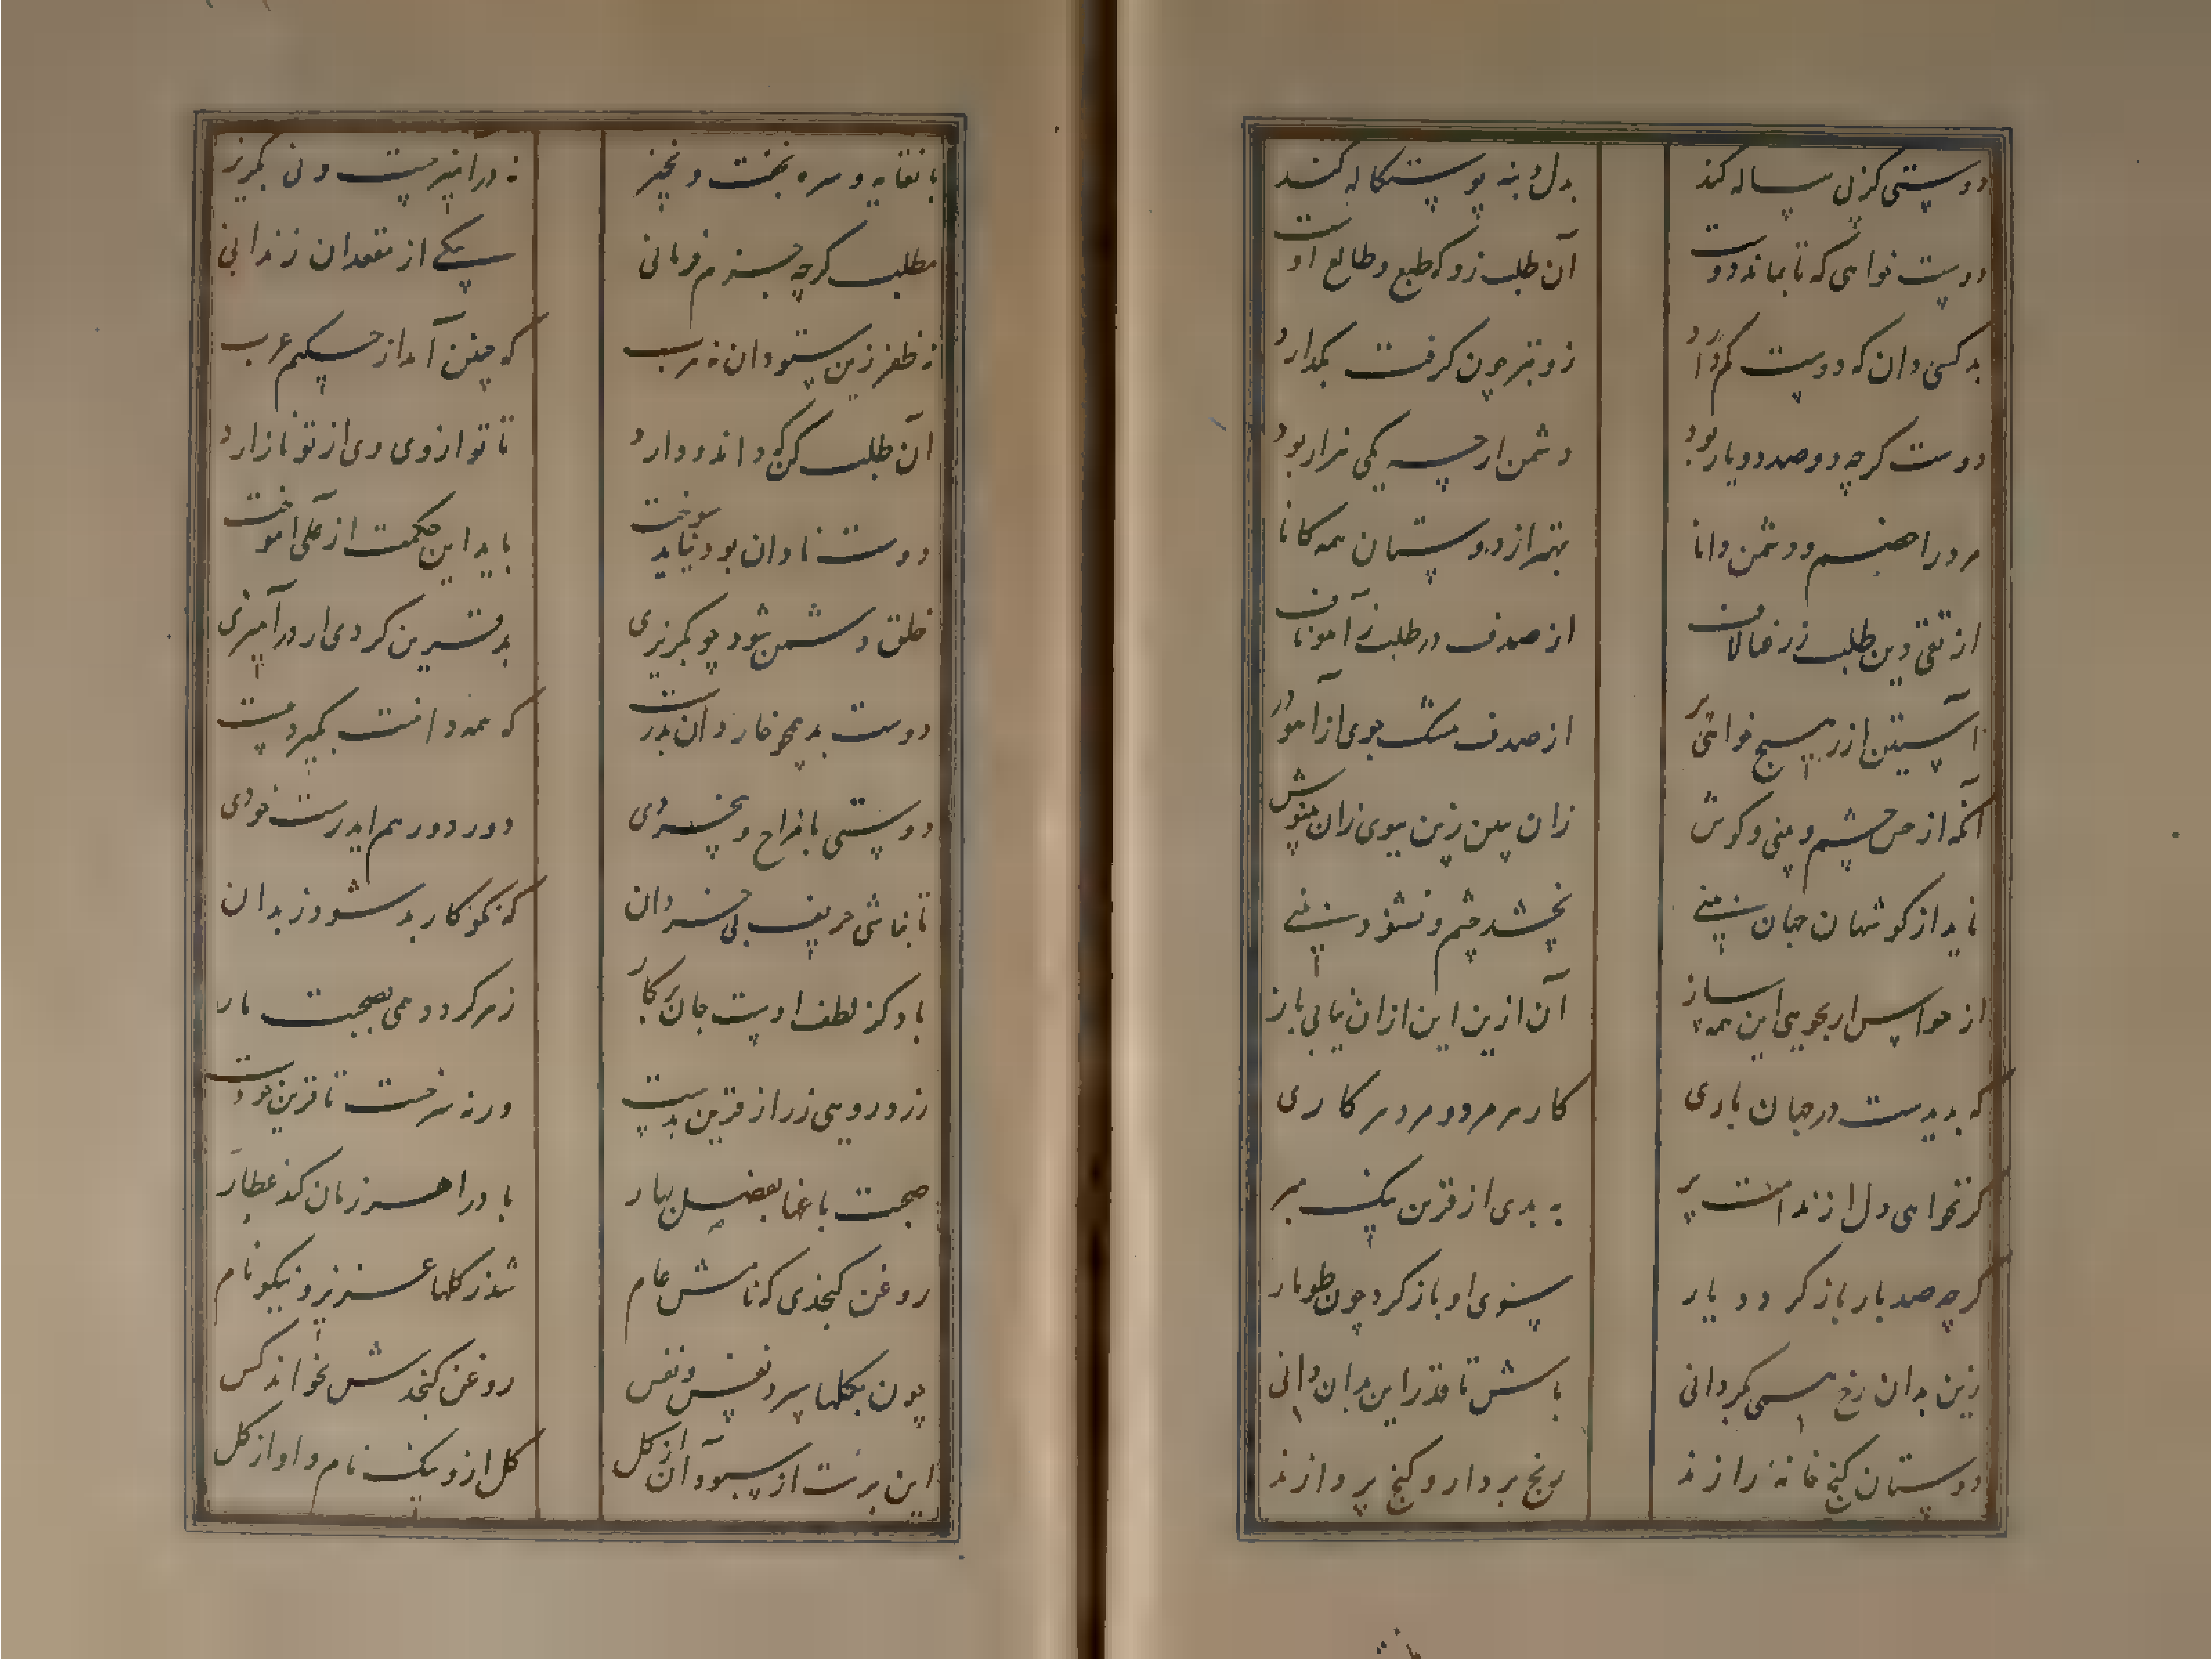 دوستی کز پی پیاله کند بدل دنبه پوستکاله کند
دوست خواهی که تا بماند دوست آن طلب زو که طبع و طالع اوست
بد کسی دان که دوست کم دارد زو بتر چون گرفت بگذارد
دوست گرچه دو صد دو یار بود دشمن ارچه یکی هزار بود
مرد را خصم و دشمن دانا بهتر از دوستان همه کانا
از تقی دین طلب ز لاف از صدف در طلب ز آهو ناف
آستین ار ز هیچ خواهی پر از صدف مشک جوی از آهو در
آنکه از حس چشم و بینی و گوش زان ببین زین ببوی زان بنیوش
ناید از گوشها جهان بینی نچشد چشم و نشنود بینی
از حواس ار بجویی این همه ساز آن ازین این ازان نیابی باز
که بدیدست در جهان باری کار هر مرد و مرد هر کاری
گر نخواهی دل از ندامت پر به بدی از قرین نیک مبر
گرچه صد بار باز گردد یار سوی او باز گرد چون طومار
زین بدان رخ همی بگردانی باش تا قدر این بدان دانی
دوستان گنج خانهٔ رازند رنج بردار و گنج پردازند
با نقایه و سره بخفت و بخیز نه درآمیز و نی بگریز
مطلب گرچه فرمانی سیکی از مقعدان زندانی
نه ظفر زین ستودان نه هرب که چنین آمد از حکیم عرب
آن طلب کن که داند و دارد تا تو از وی وی از تو نازارد
دوست نادان بود نباید سوخت باید این حکمت از علی آموخت
خلق دشمن شود چو بگریزی بد قرین گردی ار درآمیزی
دوست بد همچو خار دان بدرست که همه دامنت بگیرد سست
دوستی با مزاح و بخردی دور دور هم ایدرست خودی
تا نباشی حریف بی خردان که نکو کار بد شود ز بدان
باد کز لطف اوست جان بر کار زهر گردد همی بصحبت مار
زرد رویی زر از قرین بدست ورنه سرخست تا قرین خودست
صحبت باغها بفصل بهار باد را هر زمان کند عطار
روغن کنجدی که نامش عام شد ز گلها عزیز و نیکو نام
چون بگلها سپرد نفس و نفس روغن کنجدش نخواند کس
این برست از سبو و آن از گل گل ازو نیک نام و او از گل